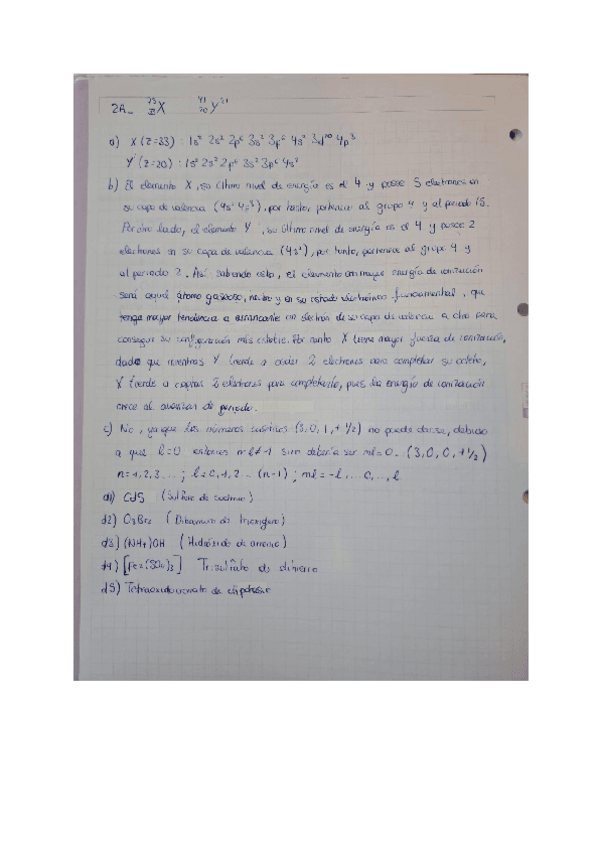 2A_ 73 X 41 20 Y 2+
a) X (Z=33) : 1s² 2s² 2p⁶ 3s² 3p⁶ 4s² 3d¹⁰ 4p³
Y (Z=20) : 1s² 2s² 2p⁶ 3s² 3p⁶ 4s²
b) El elemento X, su último nivel de energía es el 4 y posee 5 electrones en
su capa de valencia (4s² 4p³), por tanto, pertenece al grupo 4 y al periodo 15.
Por otro lado, el elemento Y, su último nivel de energía es el 4 y posee 2
electrones en su capa de valencia (4s²), por tanto, pertenece al grupo 4 y
al periodo 2. Así sabiendo esto, el elemento con mayor energía de ionización
será aquel átomo gaseoso, neutro y en su estado electrónico fundamental, que
tenga mayor tendencia a arrancarle un electrón de su capa de valencia a otro para
conseguir su configuración más estable. Por tanto X tiene mayor fuerza de ionización,
dado que mientras Y tiende a ceder 2 electrones para completar su octeto,
X tiende a captar 2 electrones para completarlo, pues la energía de ionización
crece al avanzar de periodo.
c) No, ya que los números cuánticos (3, 0, 1, +1/2) no puede darse, debido
a que l=0 entonces ml≠1 sino debería ser ml=0. (3, 0, 0, +1/2)
n=1,2,3...; l=0,1,2... (n-1); ml=-l,...0,...,l
d1) CdS (Sulfuro de cadmio)
d2) O₃Br₂ (Dibromuro de trioxígeno)
d3) (NH₄)OH (Hidróxido de amonio)
d4) [Fe₂(SO₄)₃] Trisulfato de dihierro
d5)